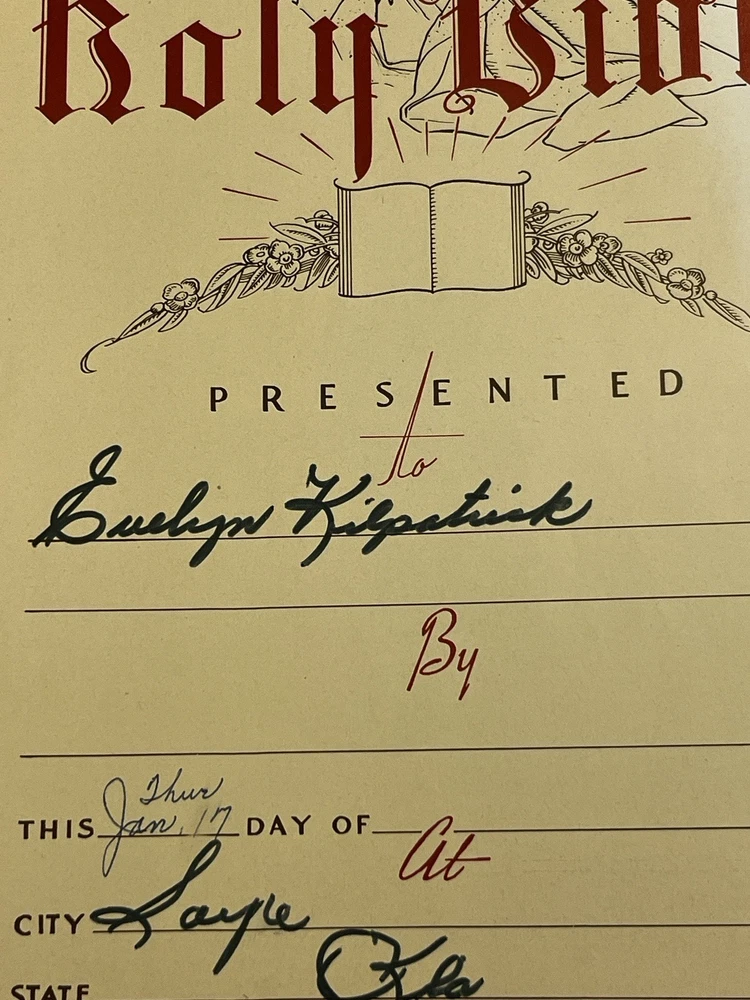 Holy Bibl
PRESENTED
to
Evelyn Kilpatrick
By
Thur
THIS Jan. 17 DAY OF
At
CITY Sayre
STATE Okla